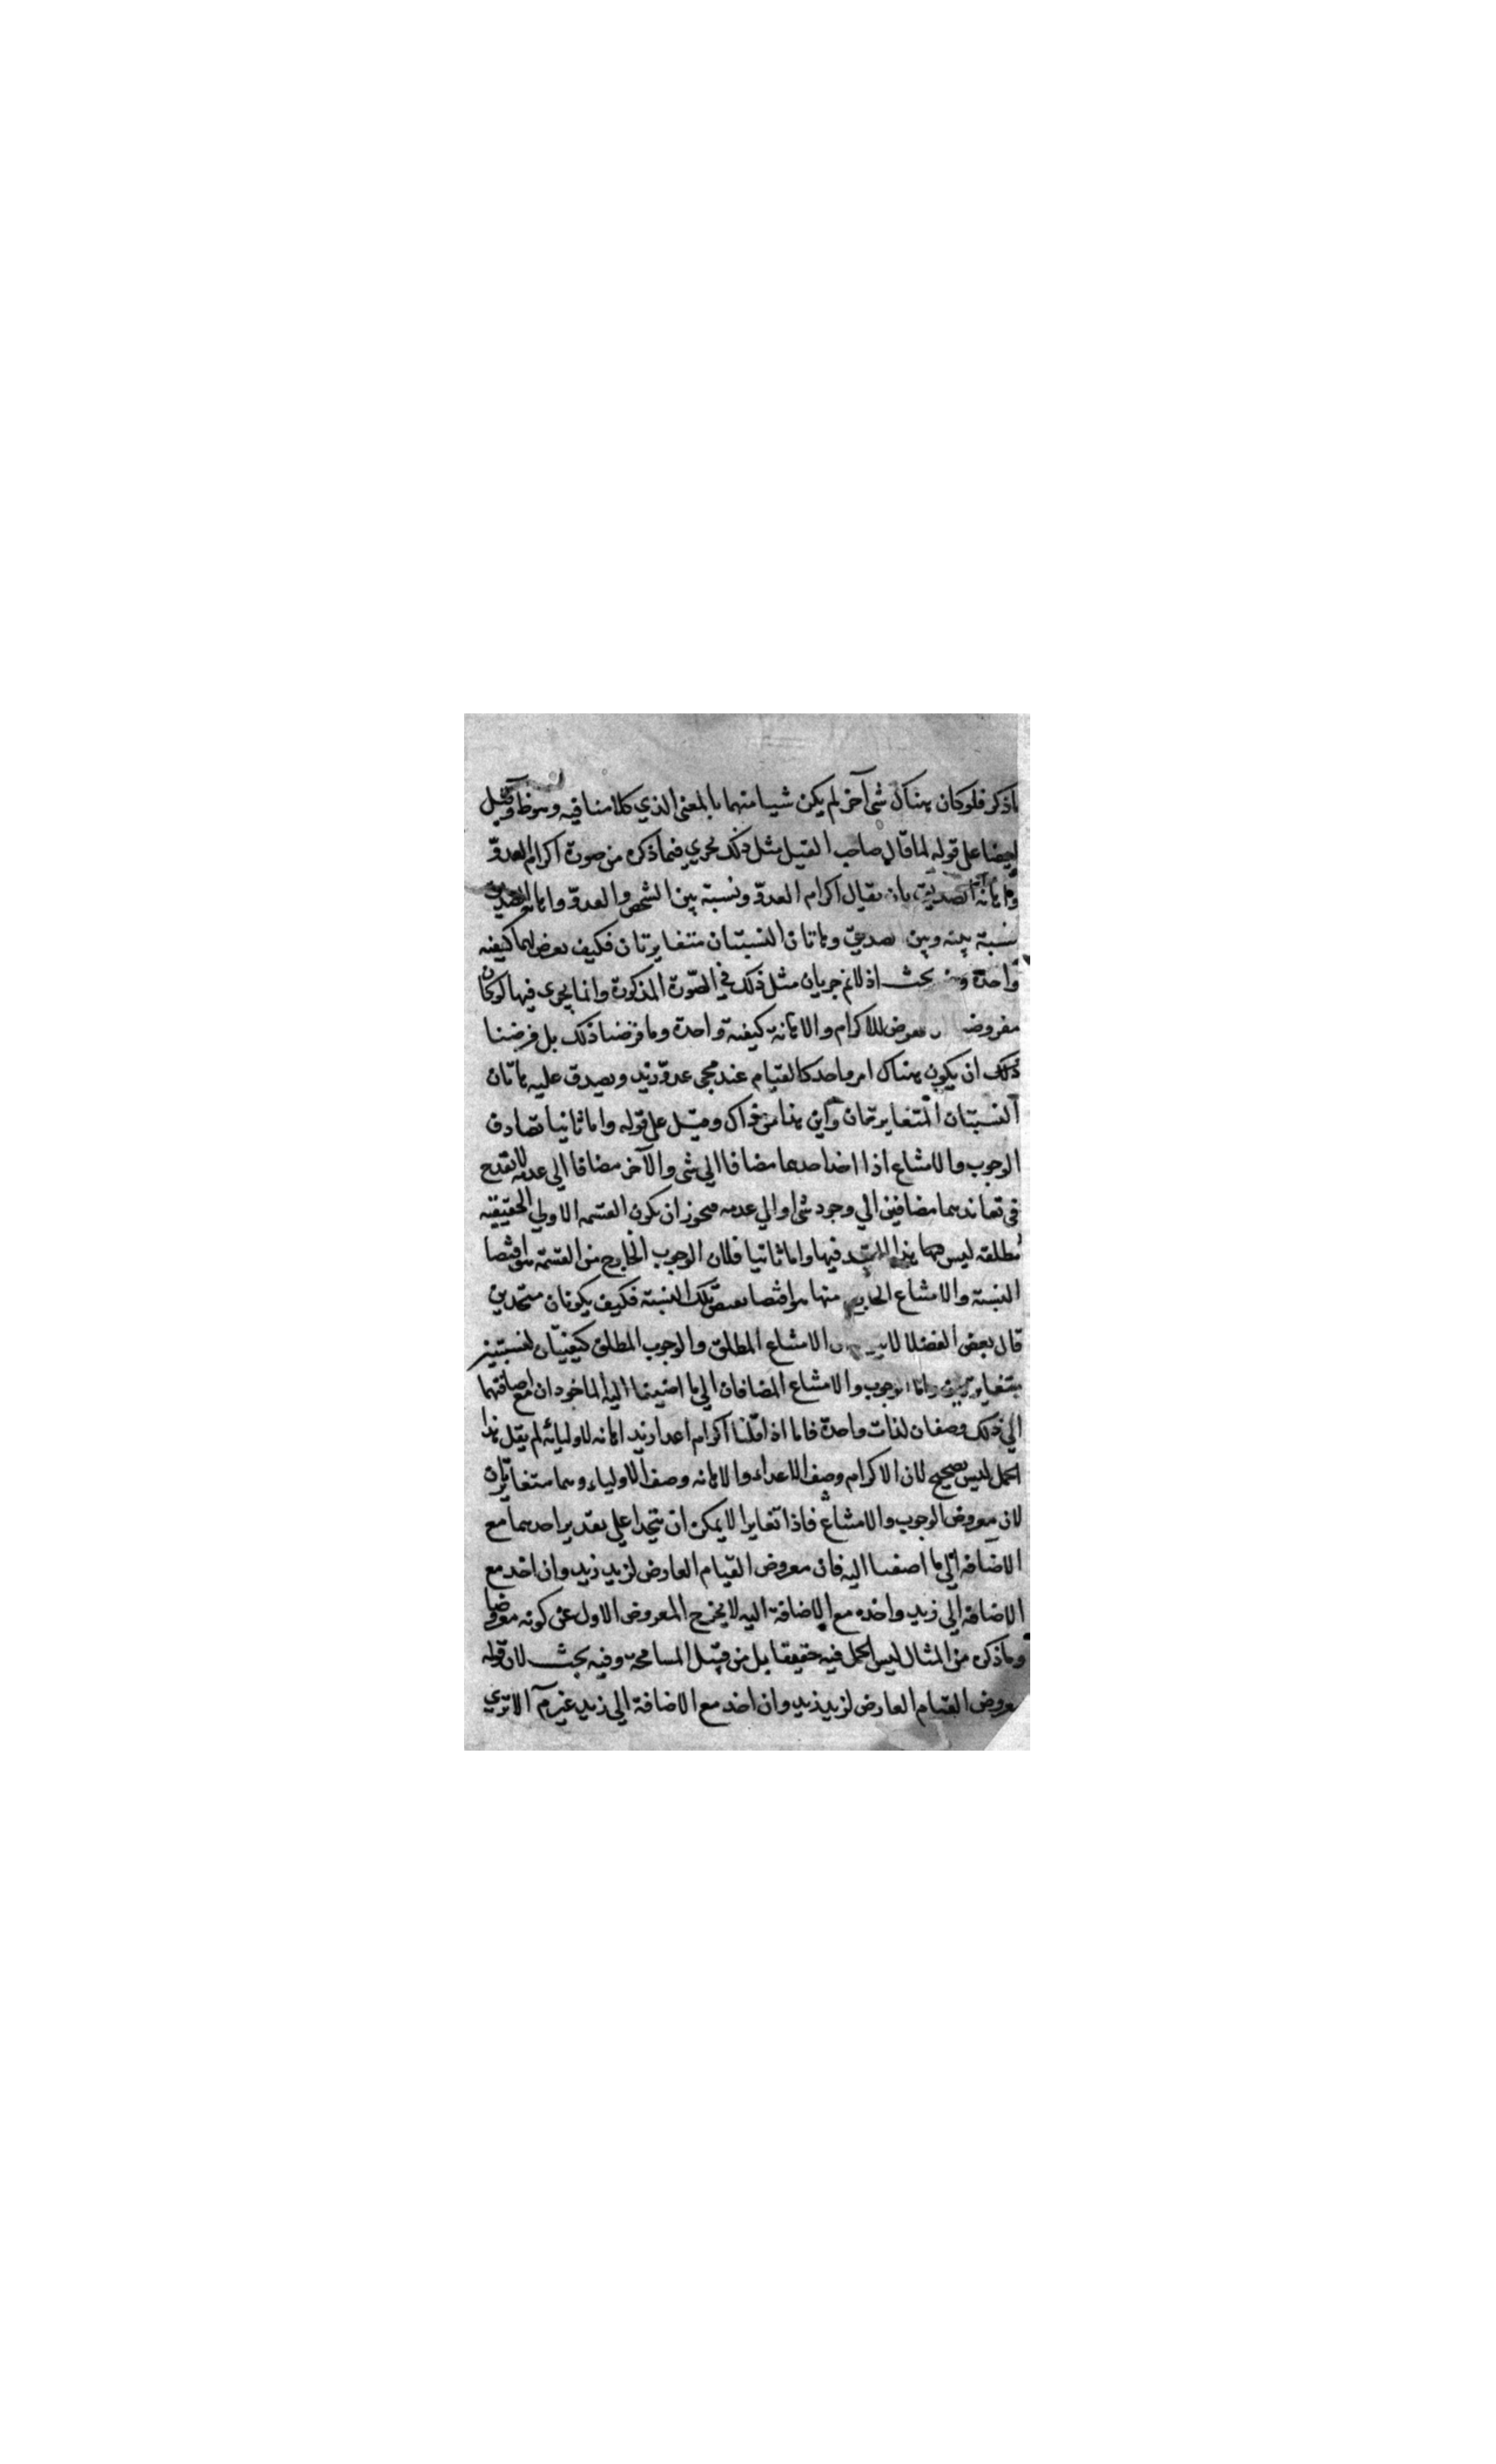 ما ذكر فلو كان هناك شئ آخر لم يكن شيا منهما بالمعنى الذي كلامنا فيه وهو ظ وقيل
ايضا على قوله لما قال صاحب القيل مثل ذلك يجري فيما ذكره من صورة اكرام العدو
الصديق بان يقال اكرام العدو ونسبة بين الشخص والعدو
نسبة بينه وبين صديق وهاتان النسبتان متغايرتان فكيف يعرض لهما كيفية
واحدة بحث اذ لانم جريان مثل ذلك في الصورة المذكورة وانما يجرى فيها لو كان
مفروضه للاكرام والاهانة كيفية واحدة وما فرضنا ذلك بل فرضنا
ذلك ان يكون هناك امر واحد كالقيام عند مجى عدو زيد ويصدق عليه هاتان
النسبتان المتغايرتان واين هذا من ذاك وقيل على قوله واما ثانيا تصادق
الوجوب والامتناع اذا اخذ احدهما مضافا الى شى والآخر مضافا الى عدمه لا يقدح
فى تعاندهما مضافين الي وجود شى او الي عدمه فيجوز ان يكون القسمه الاولي الحقيقيه
مطلقه ليس فيها واما ثانيا فلان الوجوب الخارج من القسمة هو اقتضا
النسبة والامتناع منها هو اقتضا نقيض تلك النسبة فكيف يكونان متحدين
قال بعض الفضلا الامتناع المطلق والوجوب المطلق كيفيتان لنسبتين
متغايرتين واما الوجوب والامتناع المضافان الي ما اضيفا اليه الماخوذان مع اضافتهما
الي ذلك وصفان لذات واحدة فاما اذا قلنا اكرام اعدا زيد اهانه لاوليائه لم يقل هذا
الحمل ليس بصحيح لان الاكرام وصف للاعداء والاهانه وصف للاولياء وهما متغايران
لان معروض الوجوب والامتناع فاذا تغايرا لا يمكن ان يتحدا على تقدير احدهما مع
الاضافه الي ما اضفنا اليه فان معروض القيام العارض لزيد زيد وان اخذ مع
الاضافه الي زيد واخذه مع الاضافة اليه لا يخرج المعروض الاول عن كونه معروضا
وما ذكره من المثال ليس الحمل فيه حقيقة بل من قبيل المسامحة وفيه بحث لان قوله
معروض القيام العارض لزيد زيد وان اخذ مع الاضافة الي زيد غير م الا تري